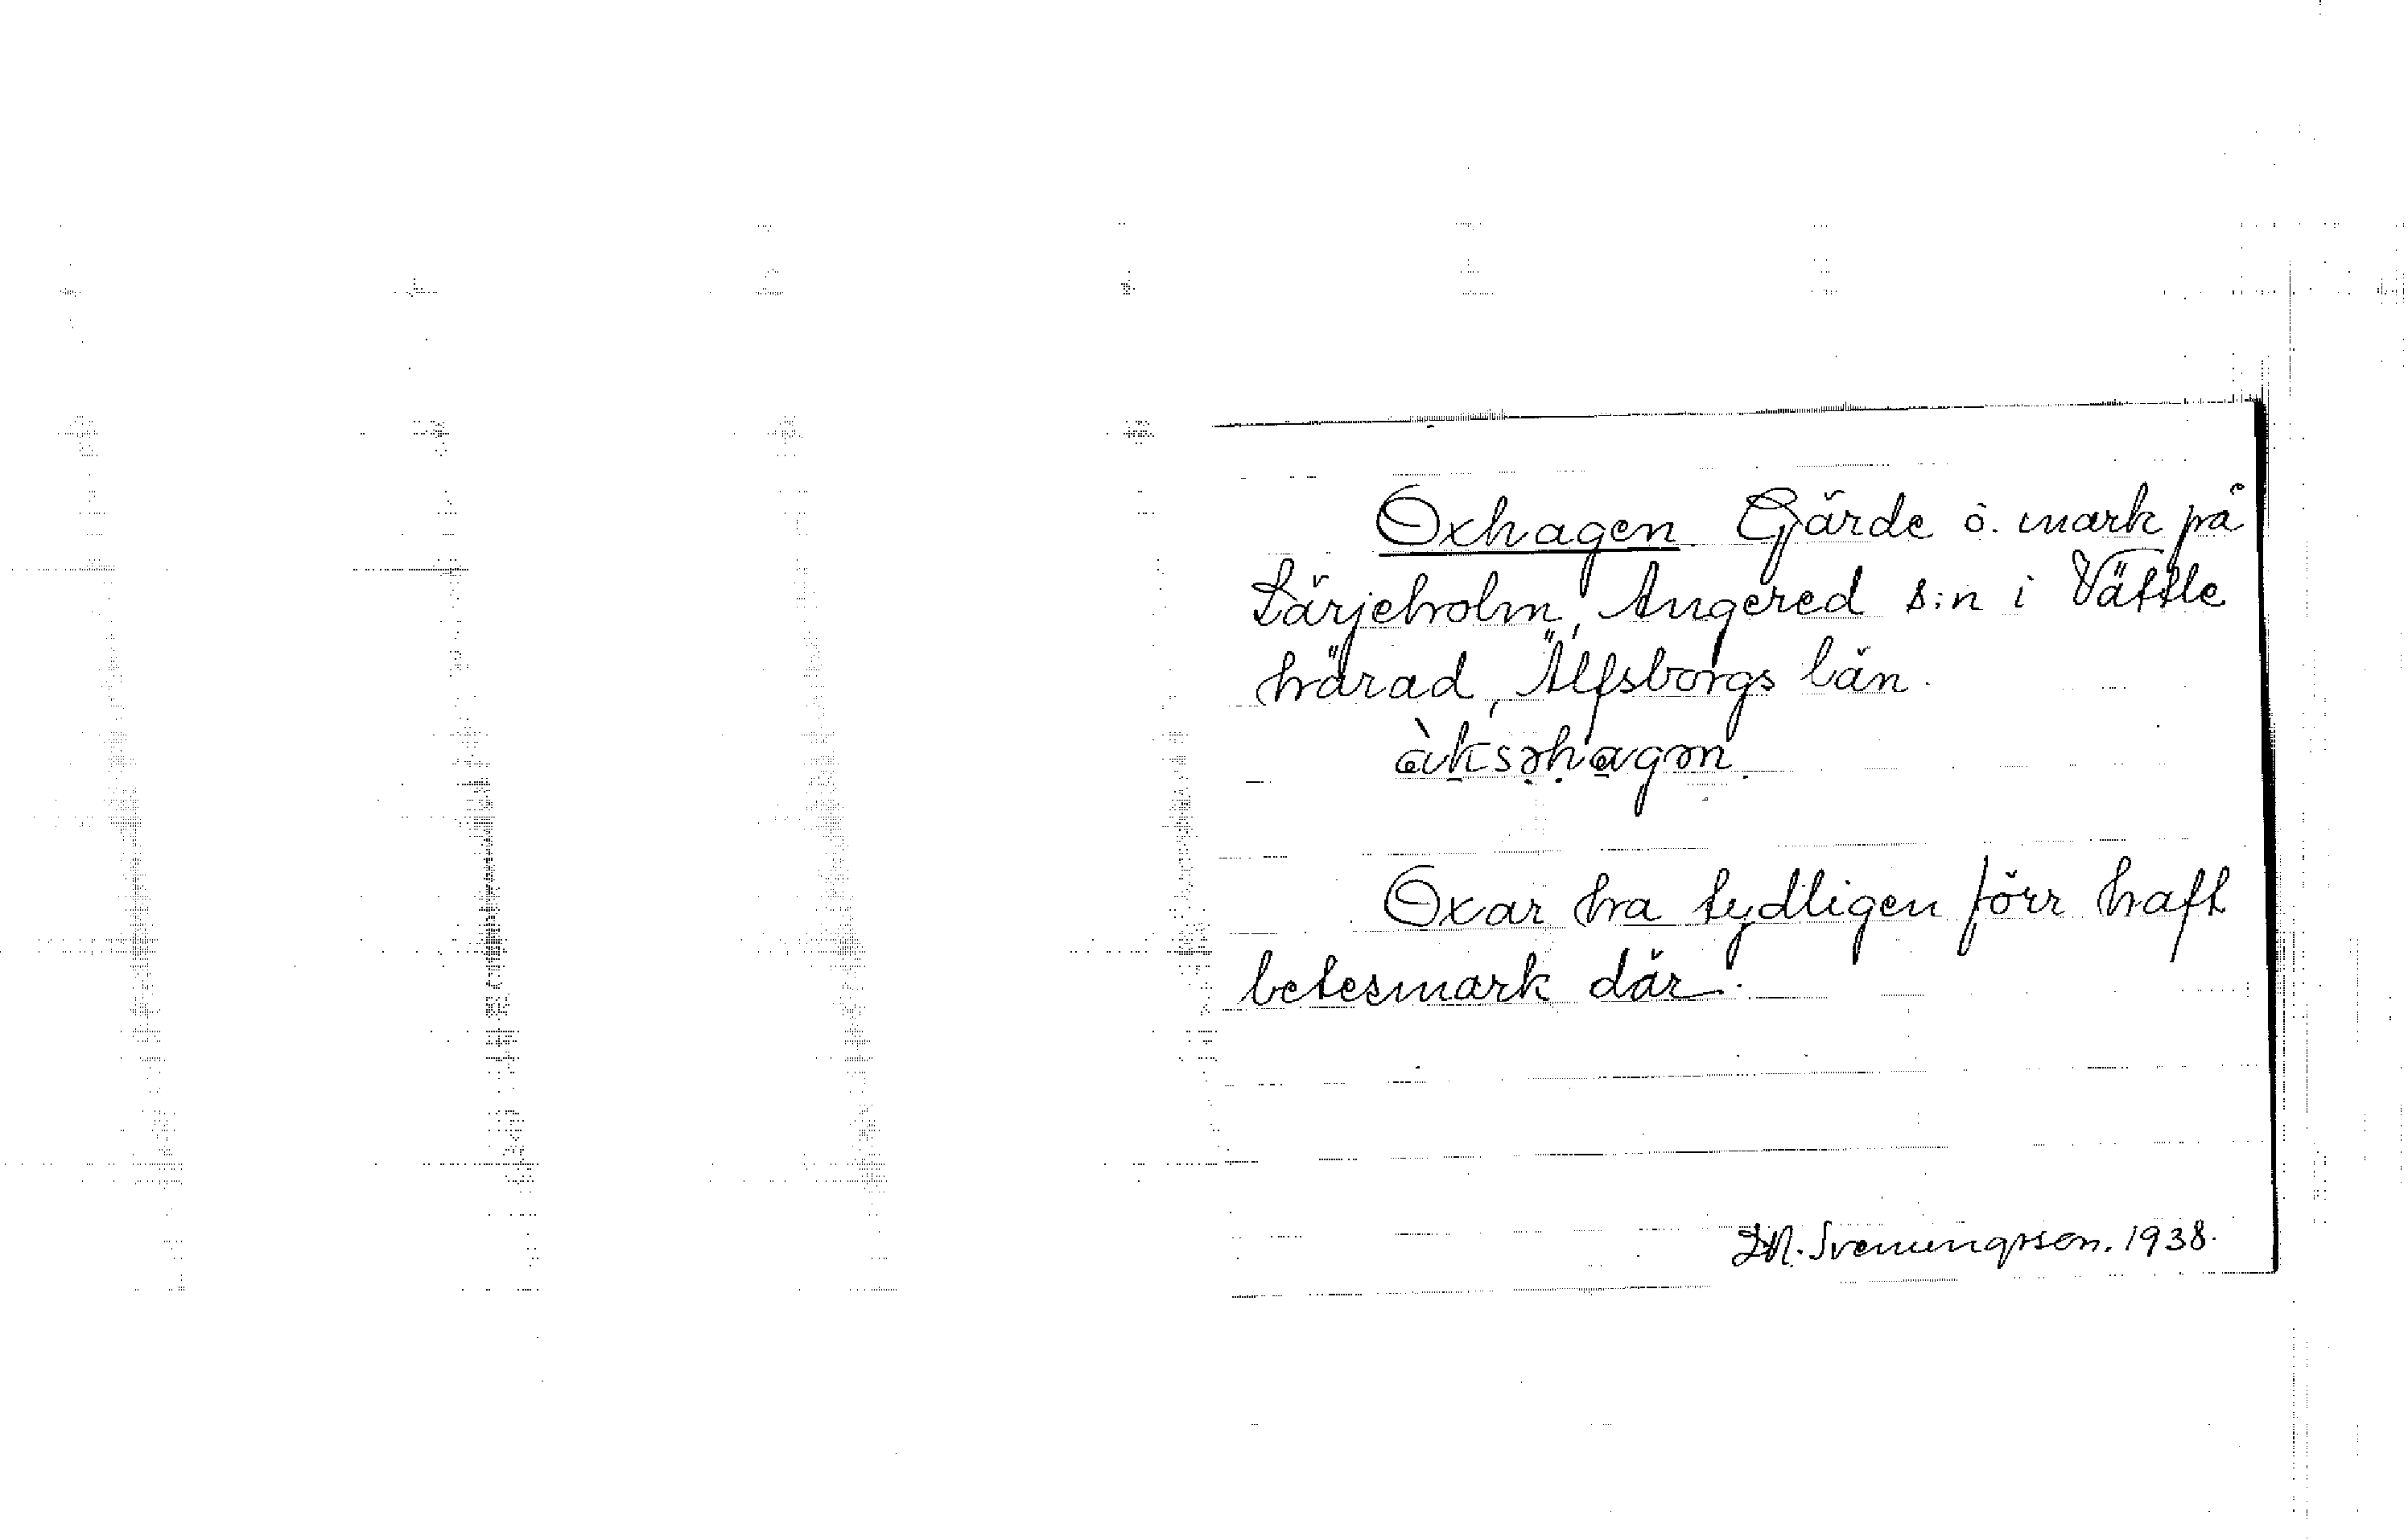 Oxhagen. Gärde o. mark på
Lärjeholm, Angered s:n i Vättle
härad, Älfsborgs län.
àksəhagən.
Oxar ha tydligen förr haft
betesmark där.
Svenungsson. 1938.